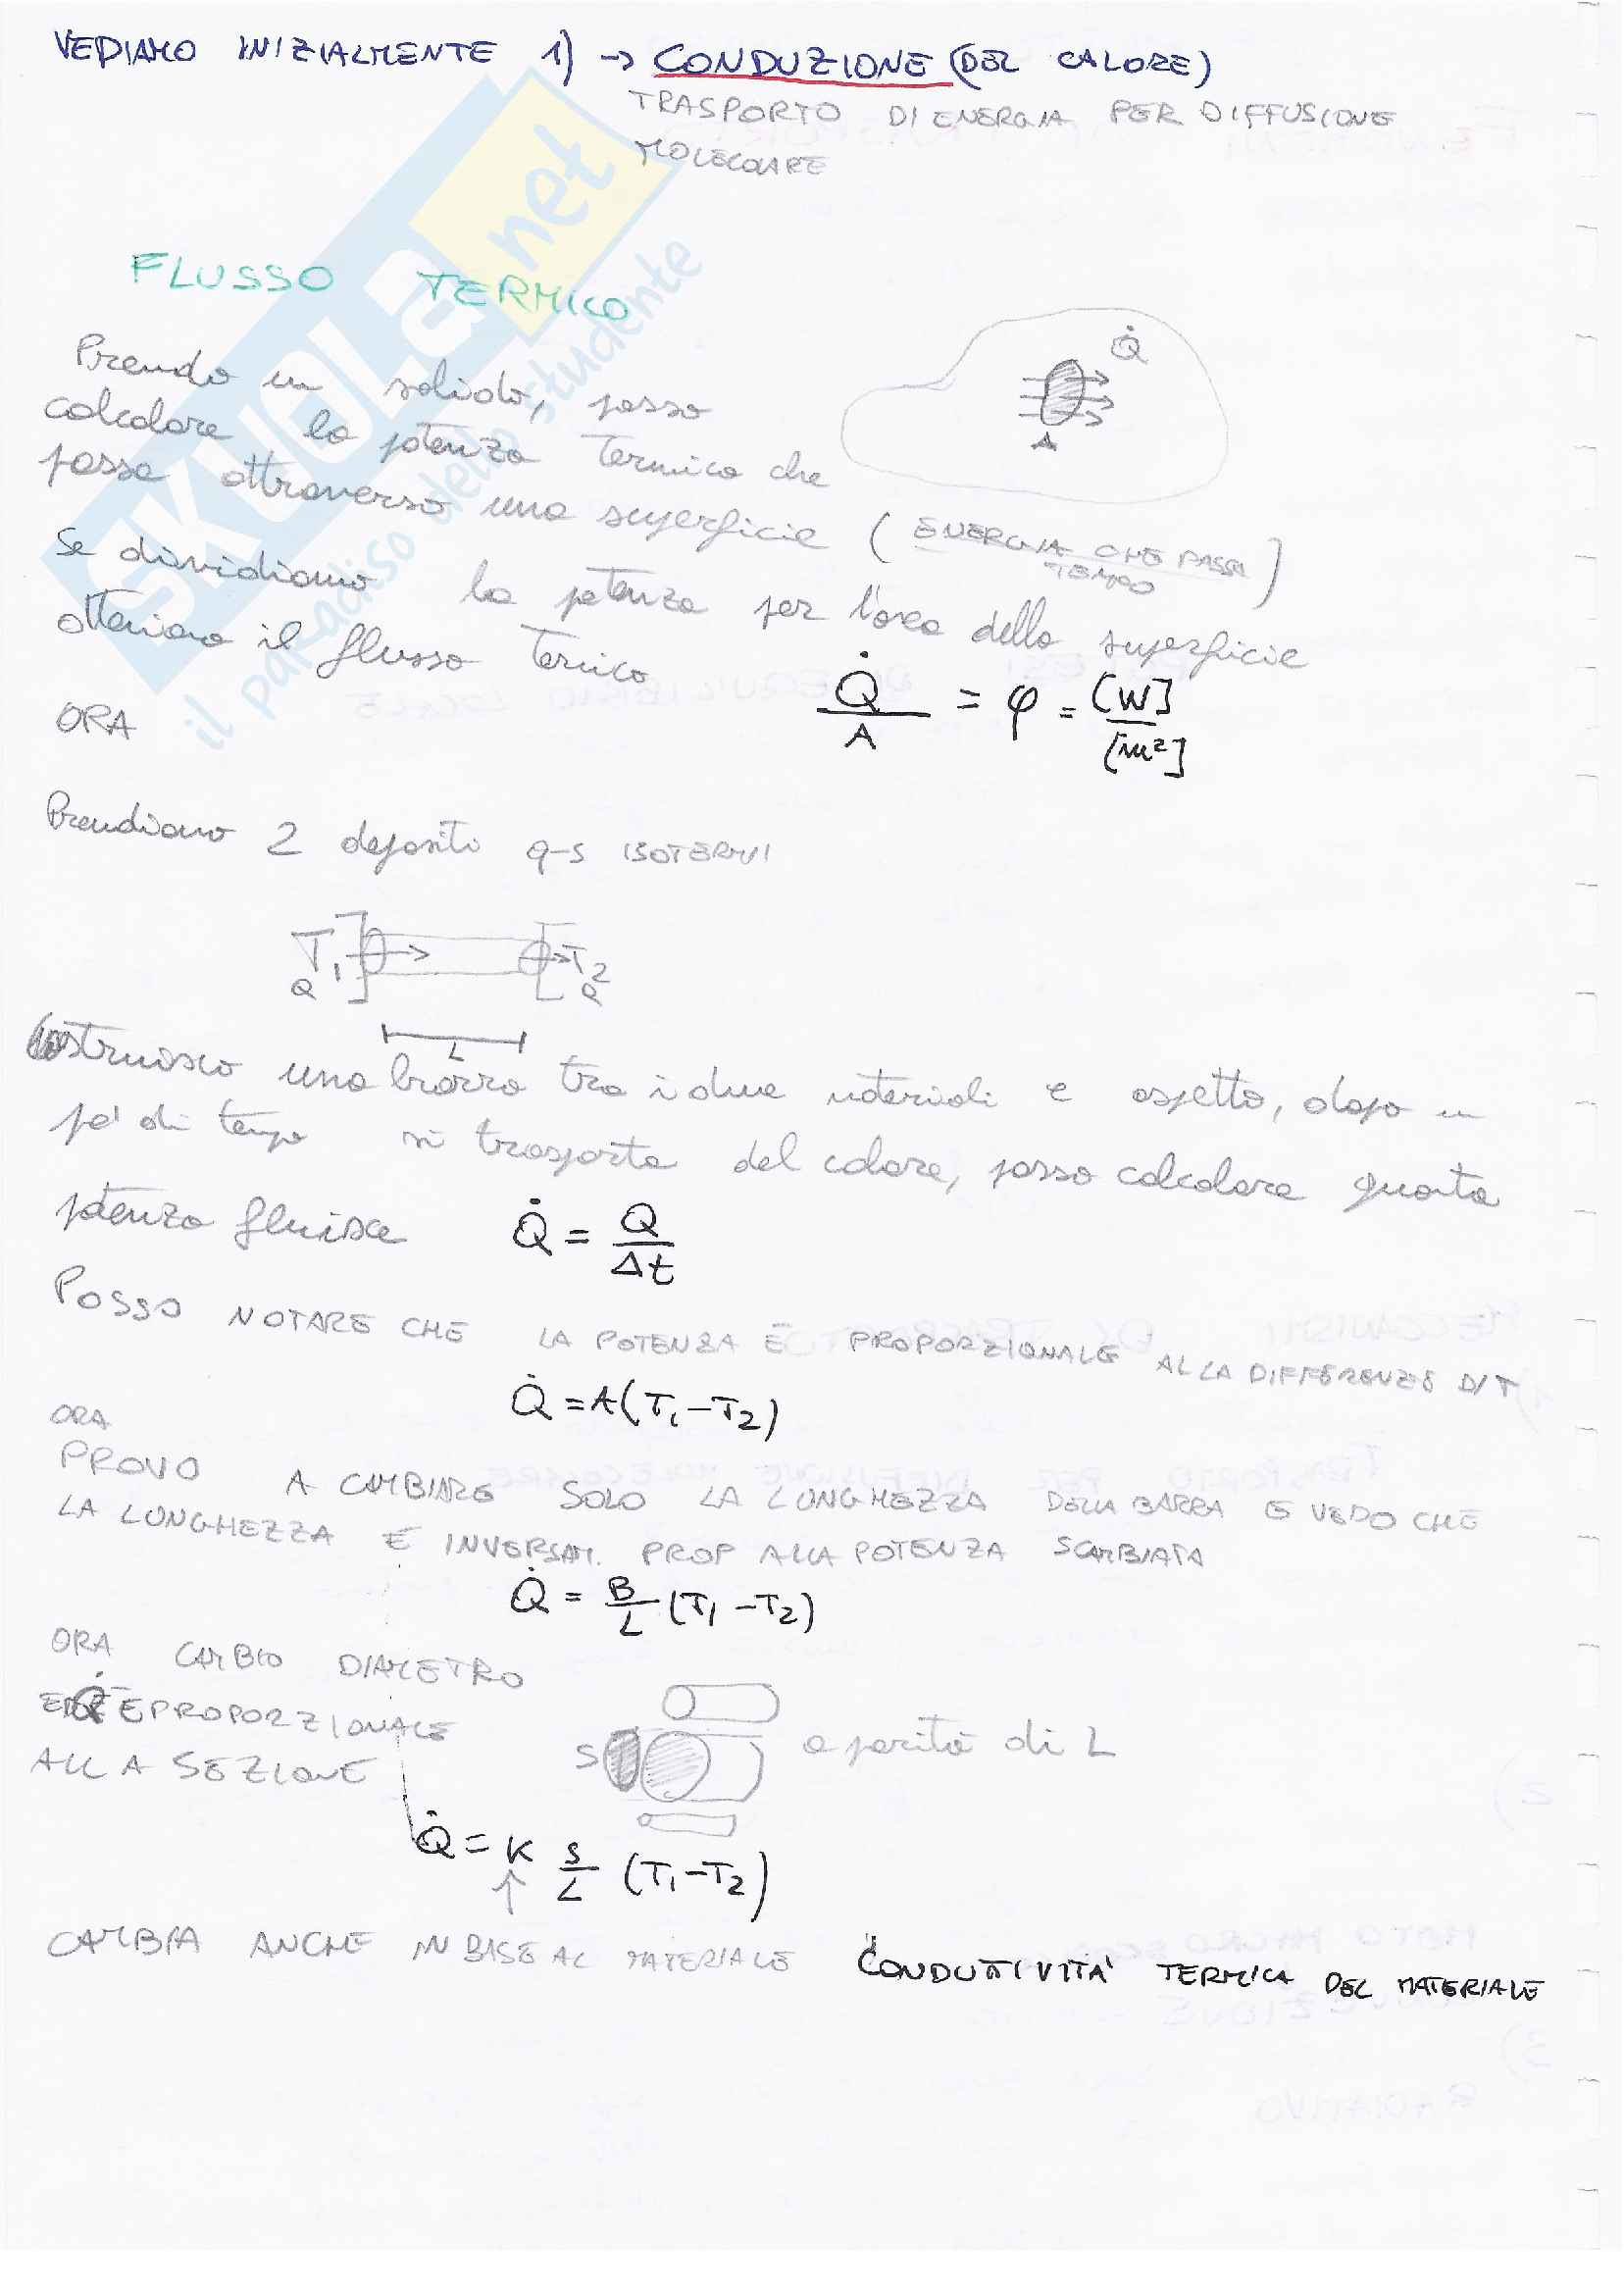 VEDIAMO INIZIALMENTE 1) → CONDUZIONE (DEL CALORE)
TRASPORTO DI ENERGIA PER DIFFUSIONE
MOLECOLARE
SKUOLA.net
il paradiso dello studente
FLUSSO TERMICO
Q̇
A
Prendo un solido, posso
calcolare la potenza termica che
passa attraverso una superficie (ENERGIA CHE PASSA / TEMPO)
Se dividiamo la potenza per l'area della superficie
otteniamo il flusso termico
Q̇/A = φ = [W]/[m²]
ORA
Prendiamo 2 depositi q-s ISOTERMI
T₁ T₂
Q Q
L
Costruisco una barra tra i due materiali e aspetto, dopo un
po' di tempo si trasporta del calore, posso calcolare quanta
potenza fluisce Q̇ = Q/Δt
POSSO NOTARE CHE LA POTENZA È PROPORZIONALE ALLA DIFFERENZE DI T
Q̇ = A(T₁-T₂)
ORA
PROVO A CAMBIARE SOLO LA LUNGHEZZA DELLA BARRA E VEDO CHE
LA LUNGHEZZA È INVERSAM. PROP ALLA POTENZA SCAMBIATA
Q̇ = B/L (T₁-T₂)
ORA CAMBIO DIAMETRO
Q̇ È PROPORZIONALE
ALLA SEZIONE
S a parità di L
Q̇ = K S/L (T₁-T₂)
↑
CAMBIA ANCHE IN BASE AL MATERIALE CONDUTTIVITÀ TERMICA DEL MATERIALE